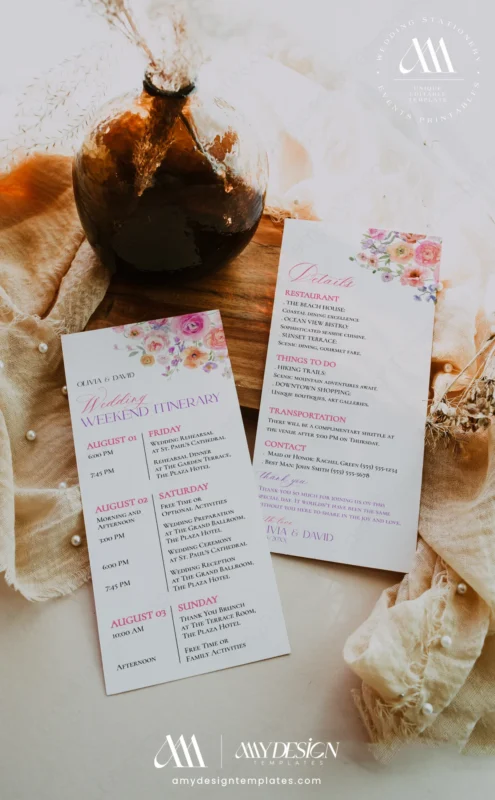 WEDDING STATIONERY
EVENTS PRINTABLES
UNIQUE
EDITABLE
TEMPLATE
OLIVIA & DAVID
Wedding
WEEKEND ITINERARY
AUGUST 01
FRIDAY
6:00 PM
Wedding Rehearsal
at St. Paul's Cathedral
7:45 PM
Rehearsal Dinner
at The Garden Terrace,
The Plaza Hotel
AUGUST 02
SATURDAY
Morning and
Afternoon
Free Time or
Optional Activities
3:00 PM
Wedding Preparation
at The Grand Ballroom,
The Plaza Hotel
6:00 PM
Wedding Ceremony
at St. Paul's Cathedral
7:45 PM
Wedding Reception
at The Grand Ballroom,
The Plaza Hotel
AUGUST 03
SUNDAY
10:00 AM
Thank You Brunch
at The Terrace Room,
The Plaza Hotel
Afternoon
Free Time or
Family Activities
Details
RESTAURANT
. THE BEACH HOUSE:
Coastal dining excellence
. OCEAN VIEW BISTRO:
Sophisticated seaside cuisine.
. SUNSET TERRACE:
Scenic dining, gourmet fare.
THINGS TO DO
. HIKING TRAILS:
Scenic mountain adventures await.
. DOWNTOWN SHOPPING:
Unique boutiques, art galleries.
TRANSPORTATION
There will be a complimentary shuttle at
the venue after 7:00 PM on Thursday.
CONTACT
. Maid of Honor: Rachel Green (555) 555-1234
. Best Man: John Smith (555) 555-5678
thank you
Thank you so much for joining us on this
special day. It wouldn't have been the same
without you here to share in the joy and love.
with love
OLIVIA & DAVID
AMY DESIGN
TEMPLATES
amydesigntemplates.com